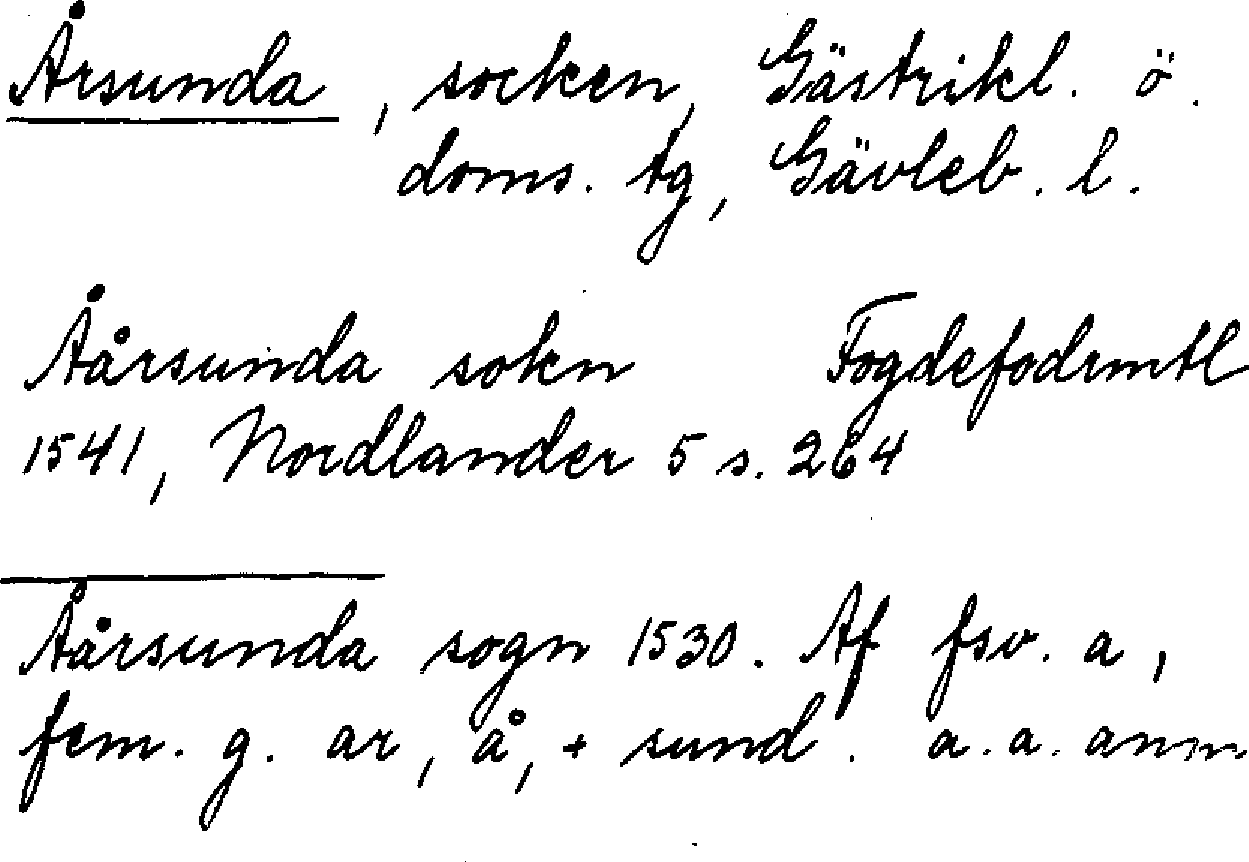 Årsunda, socken, Gästrikl. ö.
doms. tg, Gävleb. l.
Åårsunda sokn Fogdefodrmtl
1541, Nordlander 5 s. 264
Åårsunda sogn 1530. Af fsv. a,
fem. g. ar, å, + sund. a. a. anm